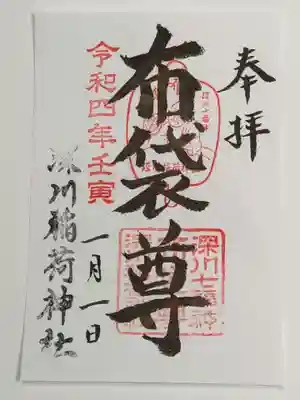 奉拝
布袋尊
深川七福神
令和四年壬寅
一月一日
深川稲荷神社